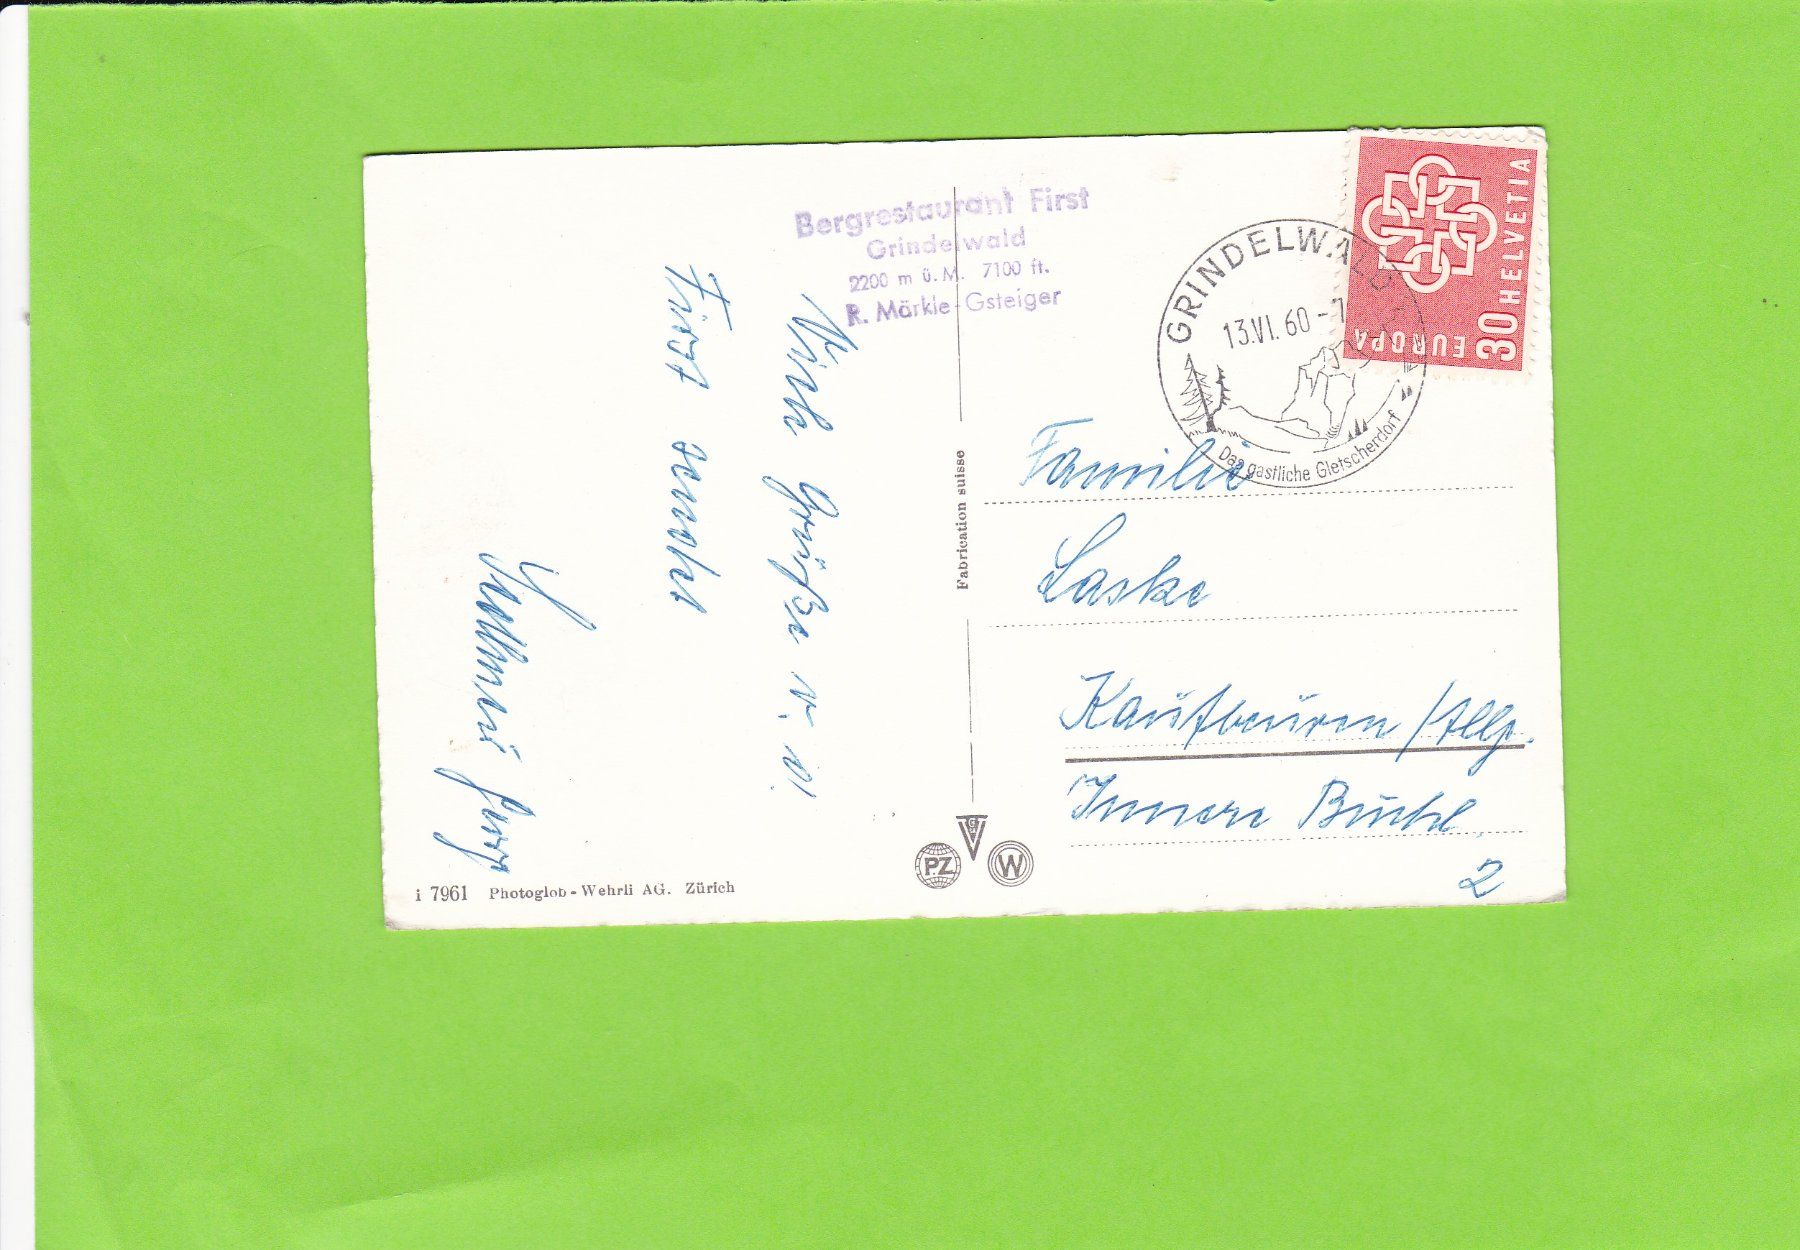 Bergrestaurant First
Grindelwald
2200 m ü. M. 7100 ft.
R. Märkle-Gsteiger
Viele Grüße v. d.
First sendet
Fabrication suisse
GRINDELWALD
13.VI.60-7
Das gastliche Gletscherdorf
30 HELVETIA
EUROPA
Familie
Laske
Kaufbeuren/Allg.
Innere Buchl.
2
i 7961 Photoglob-Wehrli AG. Zürich
PZ
VG
W